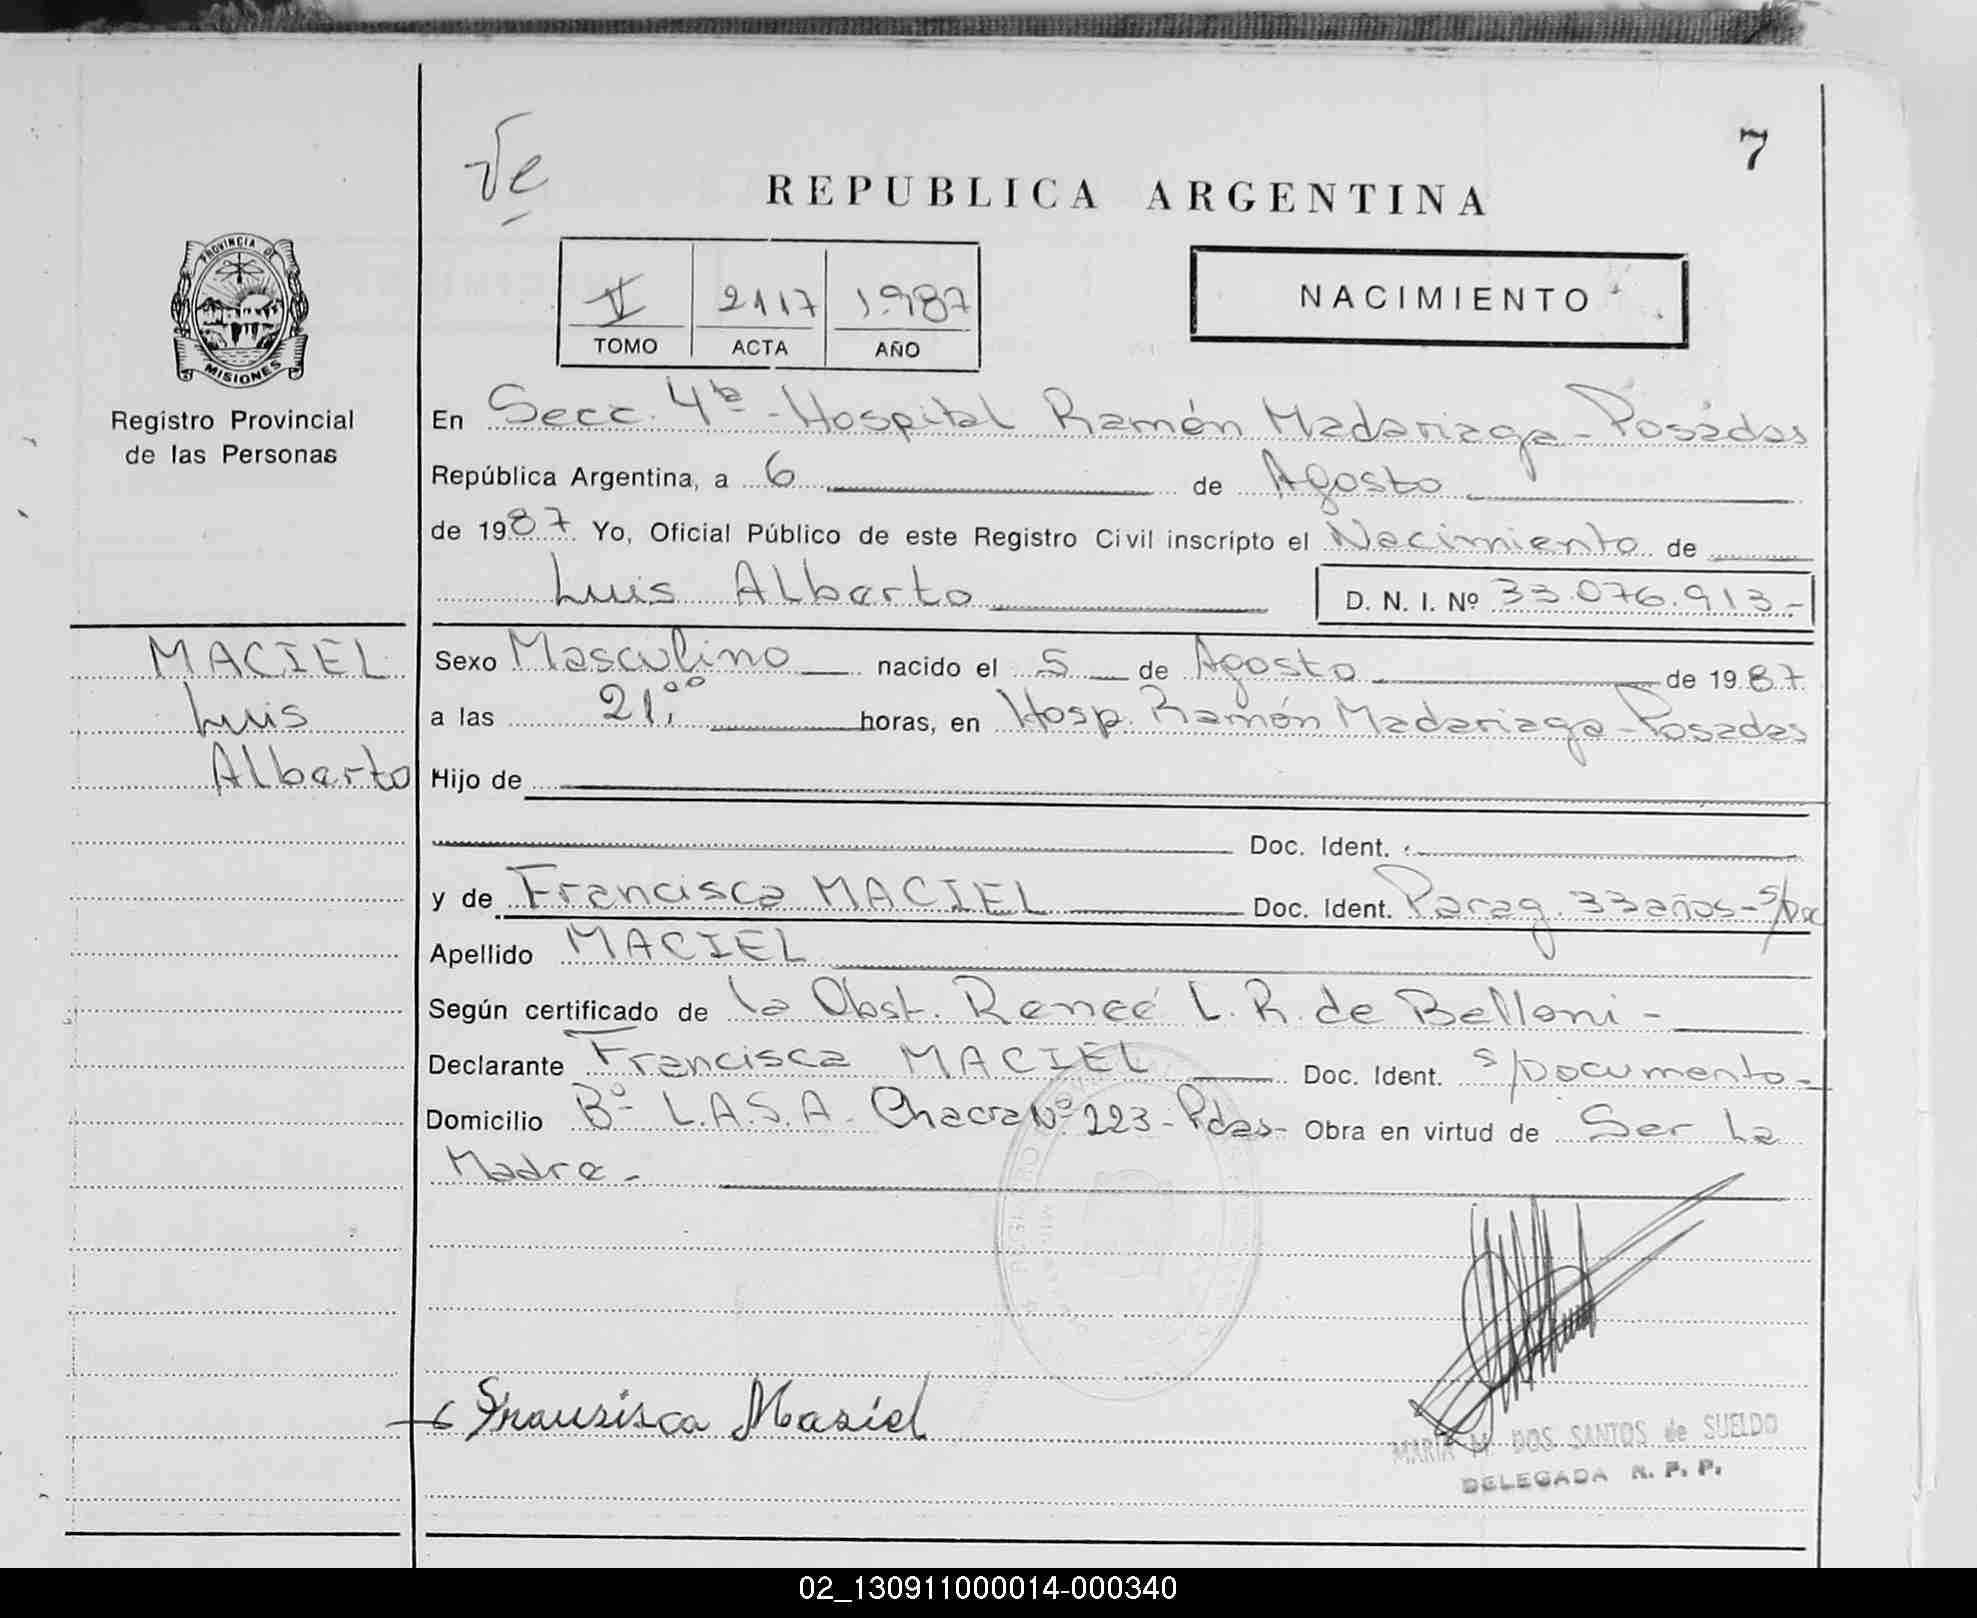 Ve
7
REPUBLICA ARGENTINA
PROVINCIA DE
MISIONES
V 2117 1.987
TOMO ACTA AÑO
NACIMIENTO
Registro Provincial
de las Personas
En Secc. 4ta - Hospital Ramón Madariaga - Posadas
República Argentina, a 6 de Agosto
de 1987 Yo, Oficial Público de este Registro Civil inscripto el Nacimiento de
Luis Alberto D. N. I. Nº 33.076.913-
MACIEL
Luis
Alberto
Sexo Masculino nacido el 5 de Agosto de 1987.
a las 21,00 horas, en Hosp. Ramón Madariaga - Posadas
Hijo de
Doc. Ident.
y de Francisca MACIEL Doc. Ident. Parag. 33 años - s/Doc
Apellido MACIEL
Según certificado de la Obst. Reneé L. R. de Belloni -
Declarante Francisca MACIEL Doc. Ident. s/Documento -
Domicilio Bº- L.A.S.A - Chacra Nº 223 - Pdas - Obra en virtud de Ser La
Madre -
Fransisca Masiel
MARIA M. DOS SANTOS de SUELDO
DELEGADA R. P. P.
02_130911000014-000340